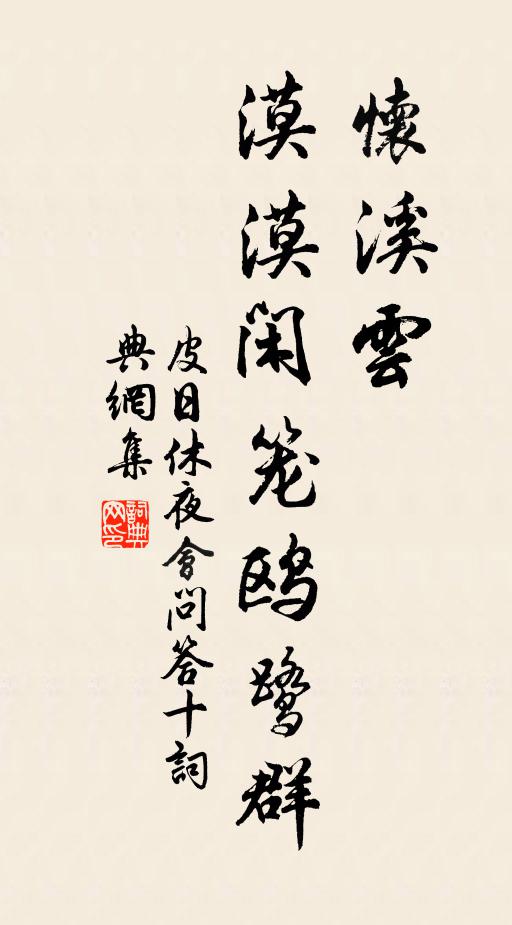 懷溪雲
漠漠閑笼鸥鹭群
皮日休夜會問答十詞
典網集
詞典网印